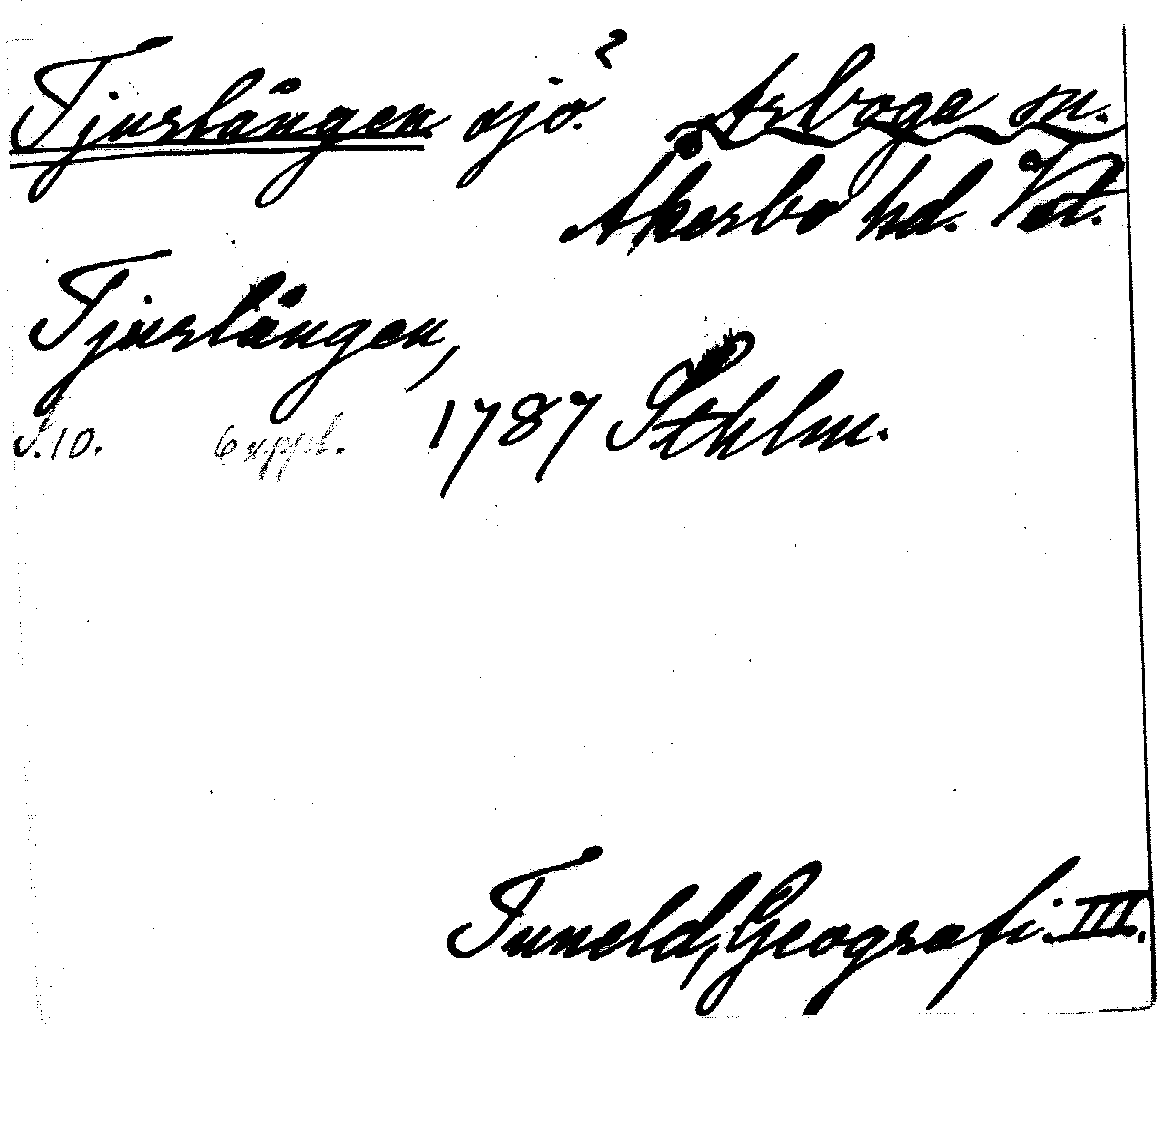 Tjurlången. sjö? Arboga sn.
Åkerbo hd. Vstm.
Tjurlången,
S. 10. 6 uppl. 1787 Sthlm.
Tuneld, Geografi. III.